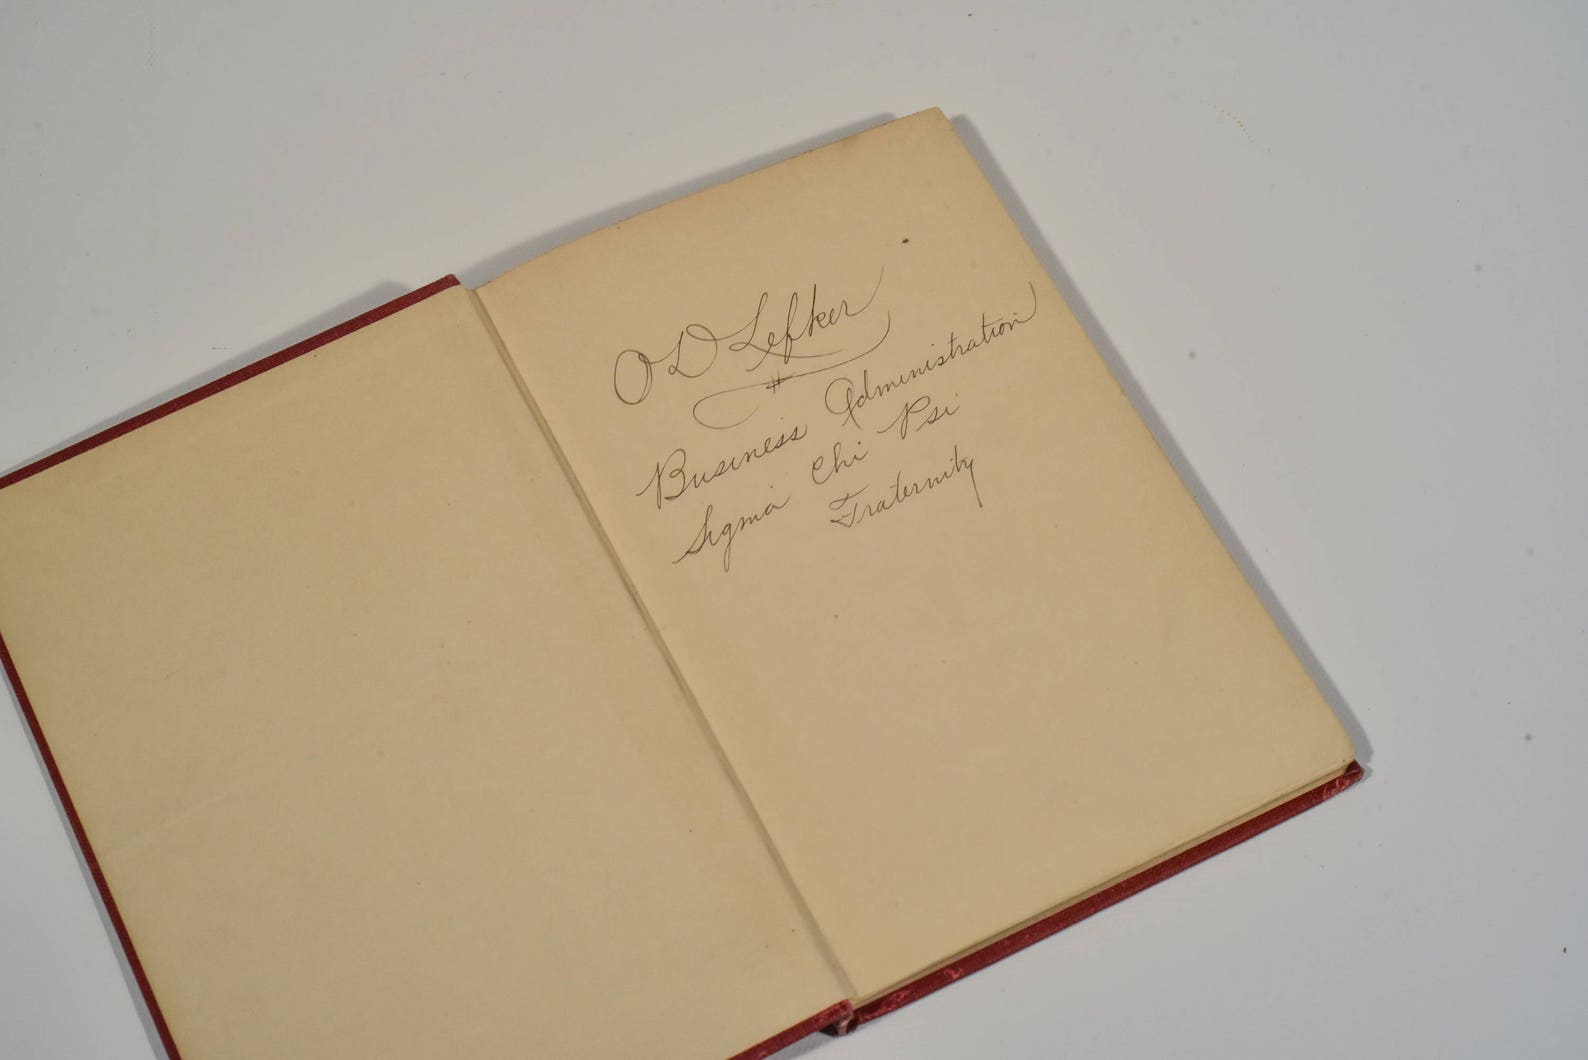 O D Lefker
#
Business Administration
Sigma Chi Psi
Fraternity